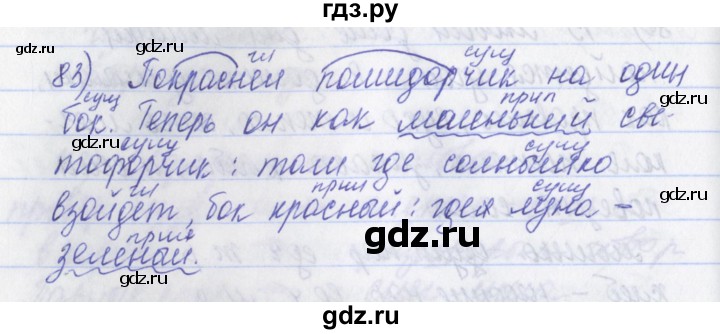 гдз.ру
83) Покраснел помидорчик на один
гл сущ
бок. Теперь он как маленький све-
сущ прил
тофорчик: там где солнышко
сущ сущ
взойдет, бок красный: где луна -
гл прил сущ
зеленый.
прил
gdz.ru gdz.ru
gdz.ru gdz.ru
gdz.ru gdz.ru
gdz.ru